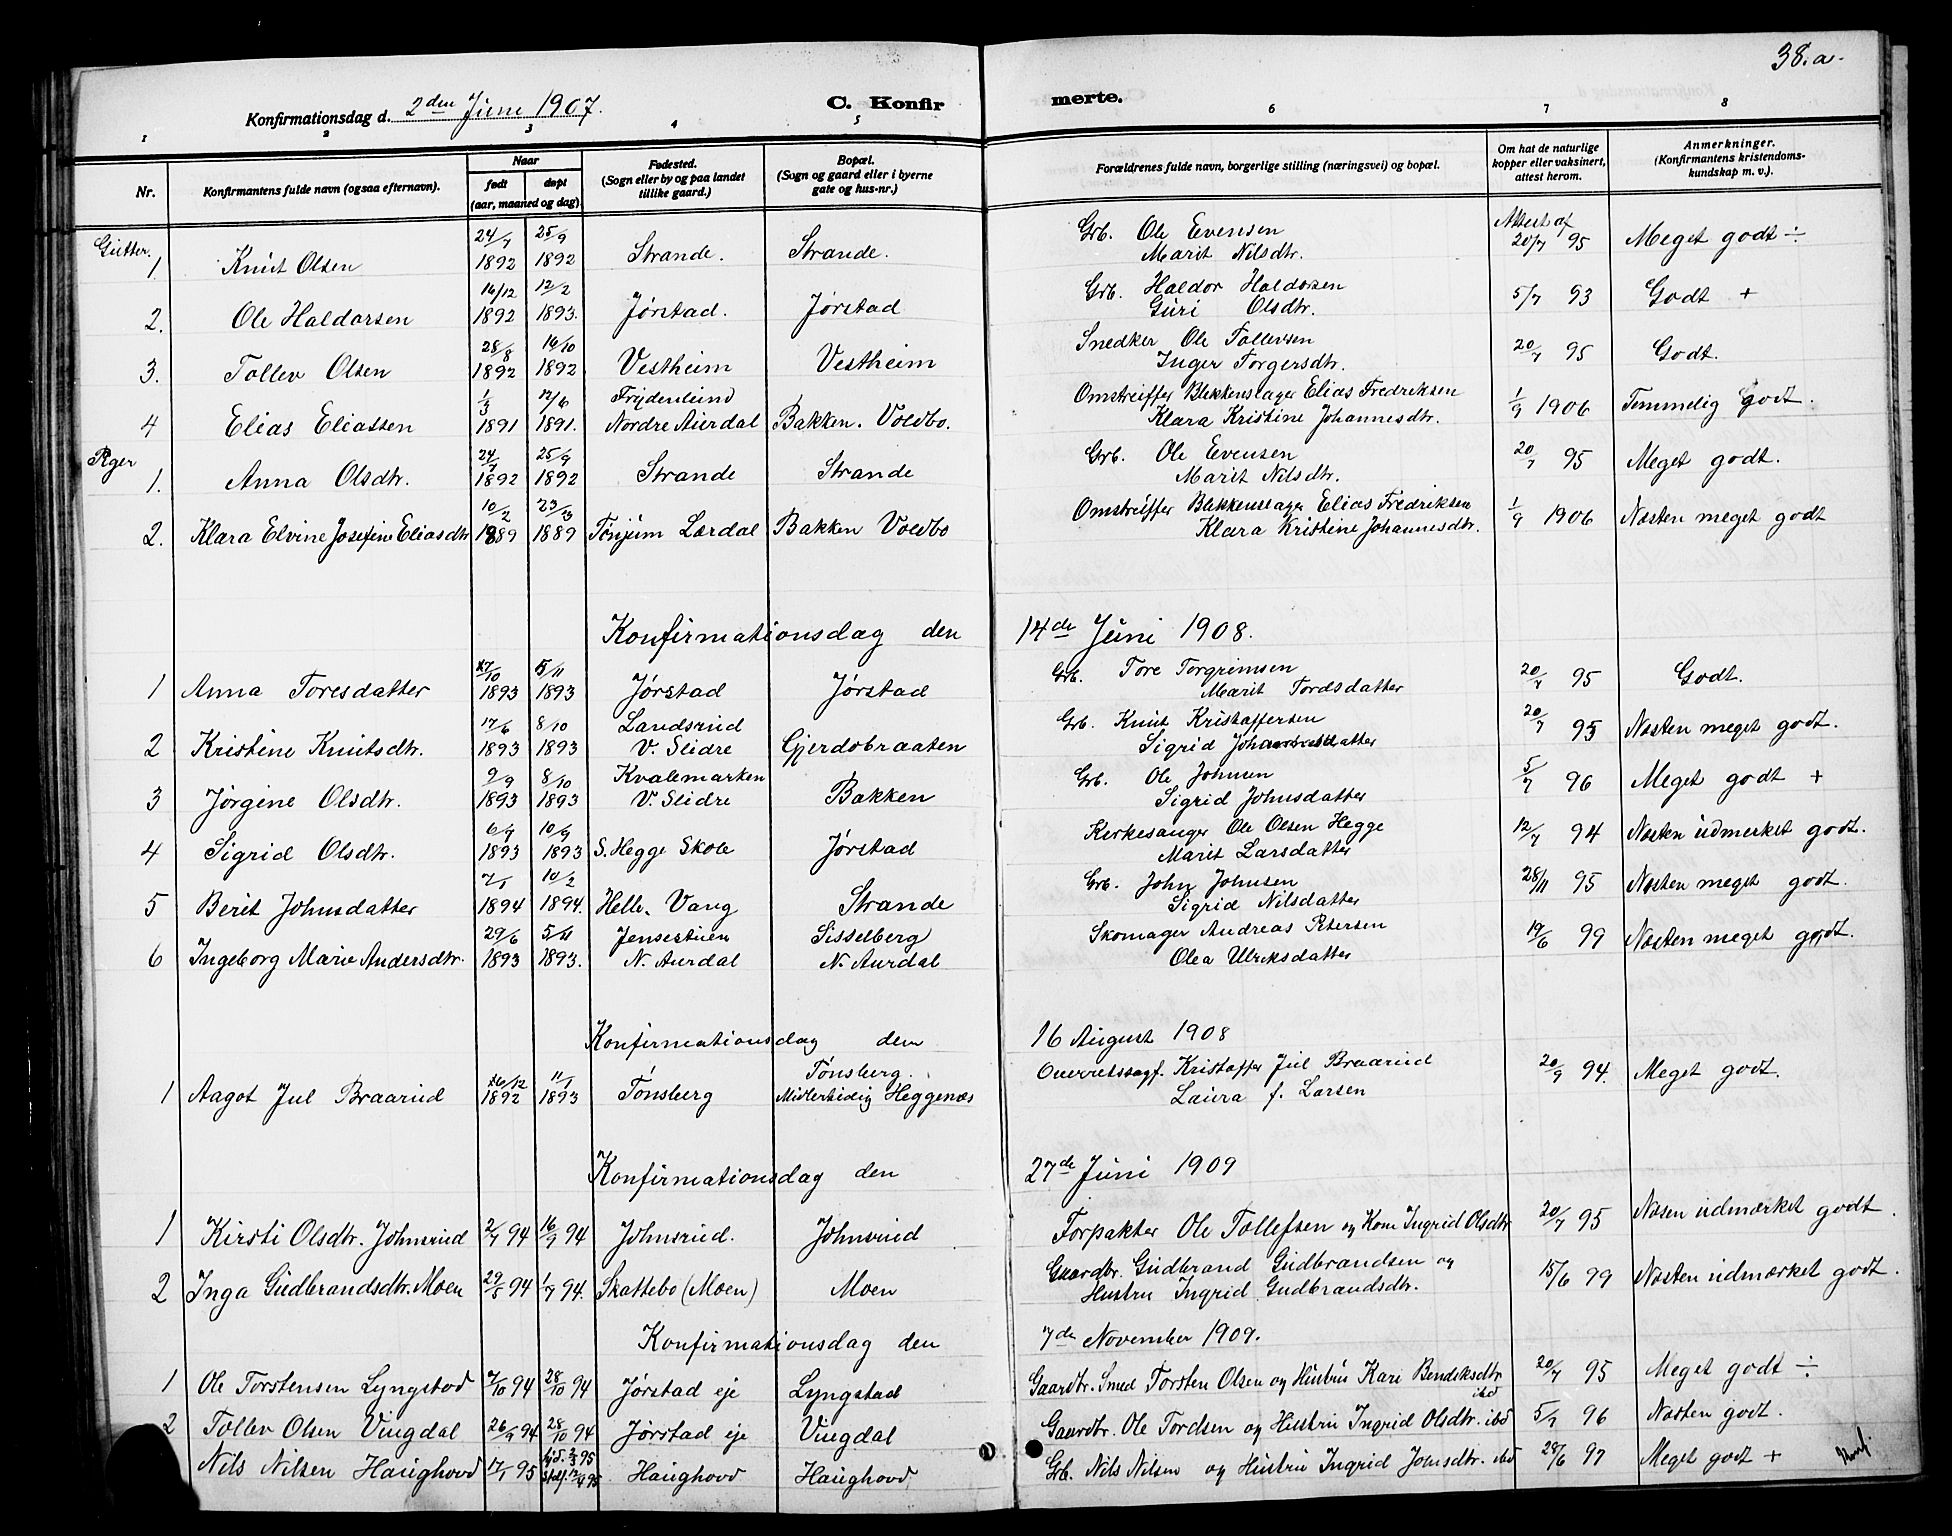 38.a.
Konfirmationsdag d. 2den Juni 1907. C. Konfirmerte.
1 2 3 4 5 6 7 8
Nr. Konfirmantens fulde navn (ogsaa efternavn). Naar født døpt (aar, maaned og dag). Fødested. (Sogn eller by og paa landet tillike gaard.) Bopæl. (Sogn og gaard eller i byerne gate og hus-nr.) Forældrenes fulde navn, borgerlige stilling (næringsvei) og bopæl. Om hat de naturlige kopper eller vaksinert, attest herom. Anmerkninger. (Konfirmantens kristendomskundskap m. v.).
Gutter.
1 Knut Olsen 24/7 1892 25/9 1892 Strande. Strande. Grb. Ole Evensen Marit Nilsdtr. Attest af 20/7 95 Meget godt ÷
2. Ole Haldorsen 16/12 1892 12/2 1893. Jørstad. Jørstad Grb. Haldor Haldorsen Guri Olsdtr. 5/7 93 Godt +
3. Tollev Olsen 28/8 1892 16/10 1892 Vestheim Vestheim Snedker Ole Tollevsen Inger Torgersdtr. 20/7 95 Godt.
4 Elias Eliassen 1/3 1891 12/6 1891. Frydenlund Nordre Aurdal Bakken. Voldbo. Omstreiffer Blekkenslager Elias Fredriksen Klara Kristine Johannesdtr. 1/9 1906 Temmelig godt.
Piger
1. Anna Olsdtr. 24/7 1892 25/9 1892 Strande Strande Grb. Ole Evensen Marit Nilsdtr. 20/7 95 Meget godt.
2. Klara Elvine Josefine Eliasdtr 10/2 1889 23/3 1889 Tønjum Lærdal Bakken Voldbo Omstreiffer Blekkenslager Elias Fredriksen Klara Kristine Johannesdtr. 1/9 1906 Næsten meget godt
Konfirmationsdag den 14de Juni 1908.
1 Anna Toresdatter 27/10 1893 5/11 1893 Jørstad Jørstad Grb. Tore Torgrimsen Marit Tordsdatter 20/7 95 Godt.
2 Kristine Knutsdtr. 17/6 1893 8/10 1893 Landsrud V. Slidre Gjerdobraaten Grb. Knut Kristoffersen Sigrid 20/7 95 Næsten meget godt.
3 Jørgine Olsdtr. 9/9 1893 8/10 1893 Kvalemarken V. Slidre Bakken Grb. Ole Johnsen Sigrid Johnsdatter 5/7 96 Meget godt +
4 Sigrid Olsdtr. 6/7 1893 10/9 1893 S. Hegge Skole Jørstad Kirkesanger Ole Olsen Hegge Marit Larsdatter 12/7 94 Næsten udmerket godt.
5 Berit Johnsdatter 7/1 1894 10/2 1894. Helle. Vang Strande Grb. John Johnsen Sigrid Nilsdatter 28/11 95 Næsten meget godt.
6 Ingeborg Marie Andersdtr. 29/6 1893 5/11 1893. Jensestuen N. Aurdal Sisselberg N. Aurdal Skomager Andreas Petersen Olea Ulriksdatter 19/6 99 Næsten meget godt.
Konfirmationsdag den 16 August 1908
1 Aagot Jul Braarud 26/12 1892 11/1 1893 Tønsberg Tønsberg. Midlertidig Heggenæs Overretssagf. Kristoffer Jul Braarud Laura f. Larsen 20/9 94. Meget godt.
Konfirmationsdag den 27de Juni 1909
1 Kirsti Olsdtr. Johnsrud 2/7 94 16/9 94 Johnsrud. Johnsrud Forpakter Ole Tollefsen og Kone Ingrid Olsdtr 20/7 95 Næsen udmærket godt.
2 Inga Gudbrandsdtr. Moen 29/5 94 1/7 94. Skattebo (Moen) Moen Gaardbr. Gudbrand Gudbrandsen og Hustru Ingrid Gudbrandsdtr. 15/6 99 Næsten udmærket godt.
Konfirmationsdag den 7de November 1909.
1 Ole Torstensen Lyngstad 7/10 94 28/10 94 Jørstad eje Lyngstad Gaardbr. Smed Torsten Olsen og Hustru Kari Bendiksdtr ibd 20/7 95 Meget godt ÷
2 Tollev Olsen Vingdal 26/9 94 28/10 94 Jørstad eje Vingdal Gaardbr. Ole Tordsen og Hustru Ingrid Olsdtr. ibd 5/7 96 Næsten godt.
Nils Nilsen Haughovd 17/1 95 Haughovd Haughovd Grb. Nils Nilsen og Hustru Ingrid Jonsdtr. ibd 28/6 97 Meget godt +